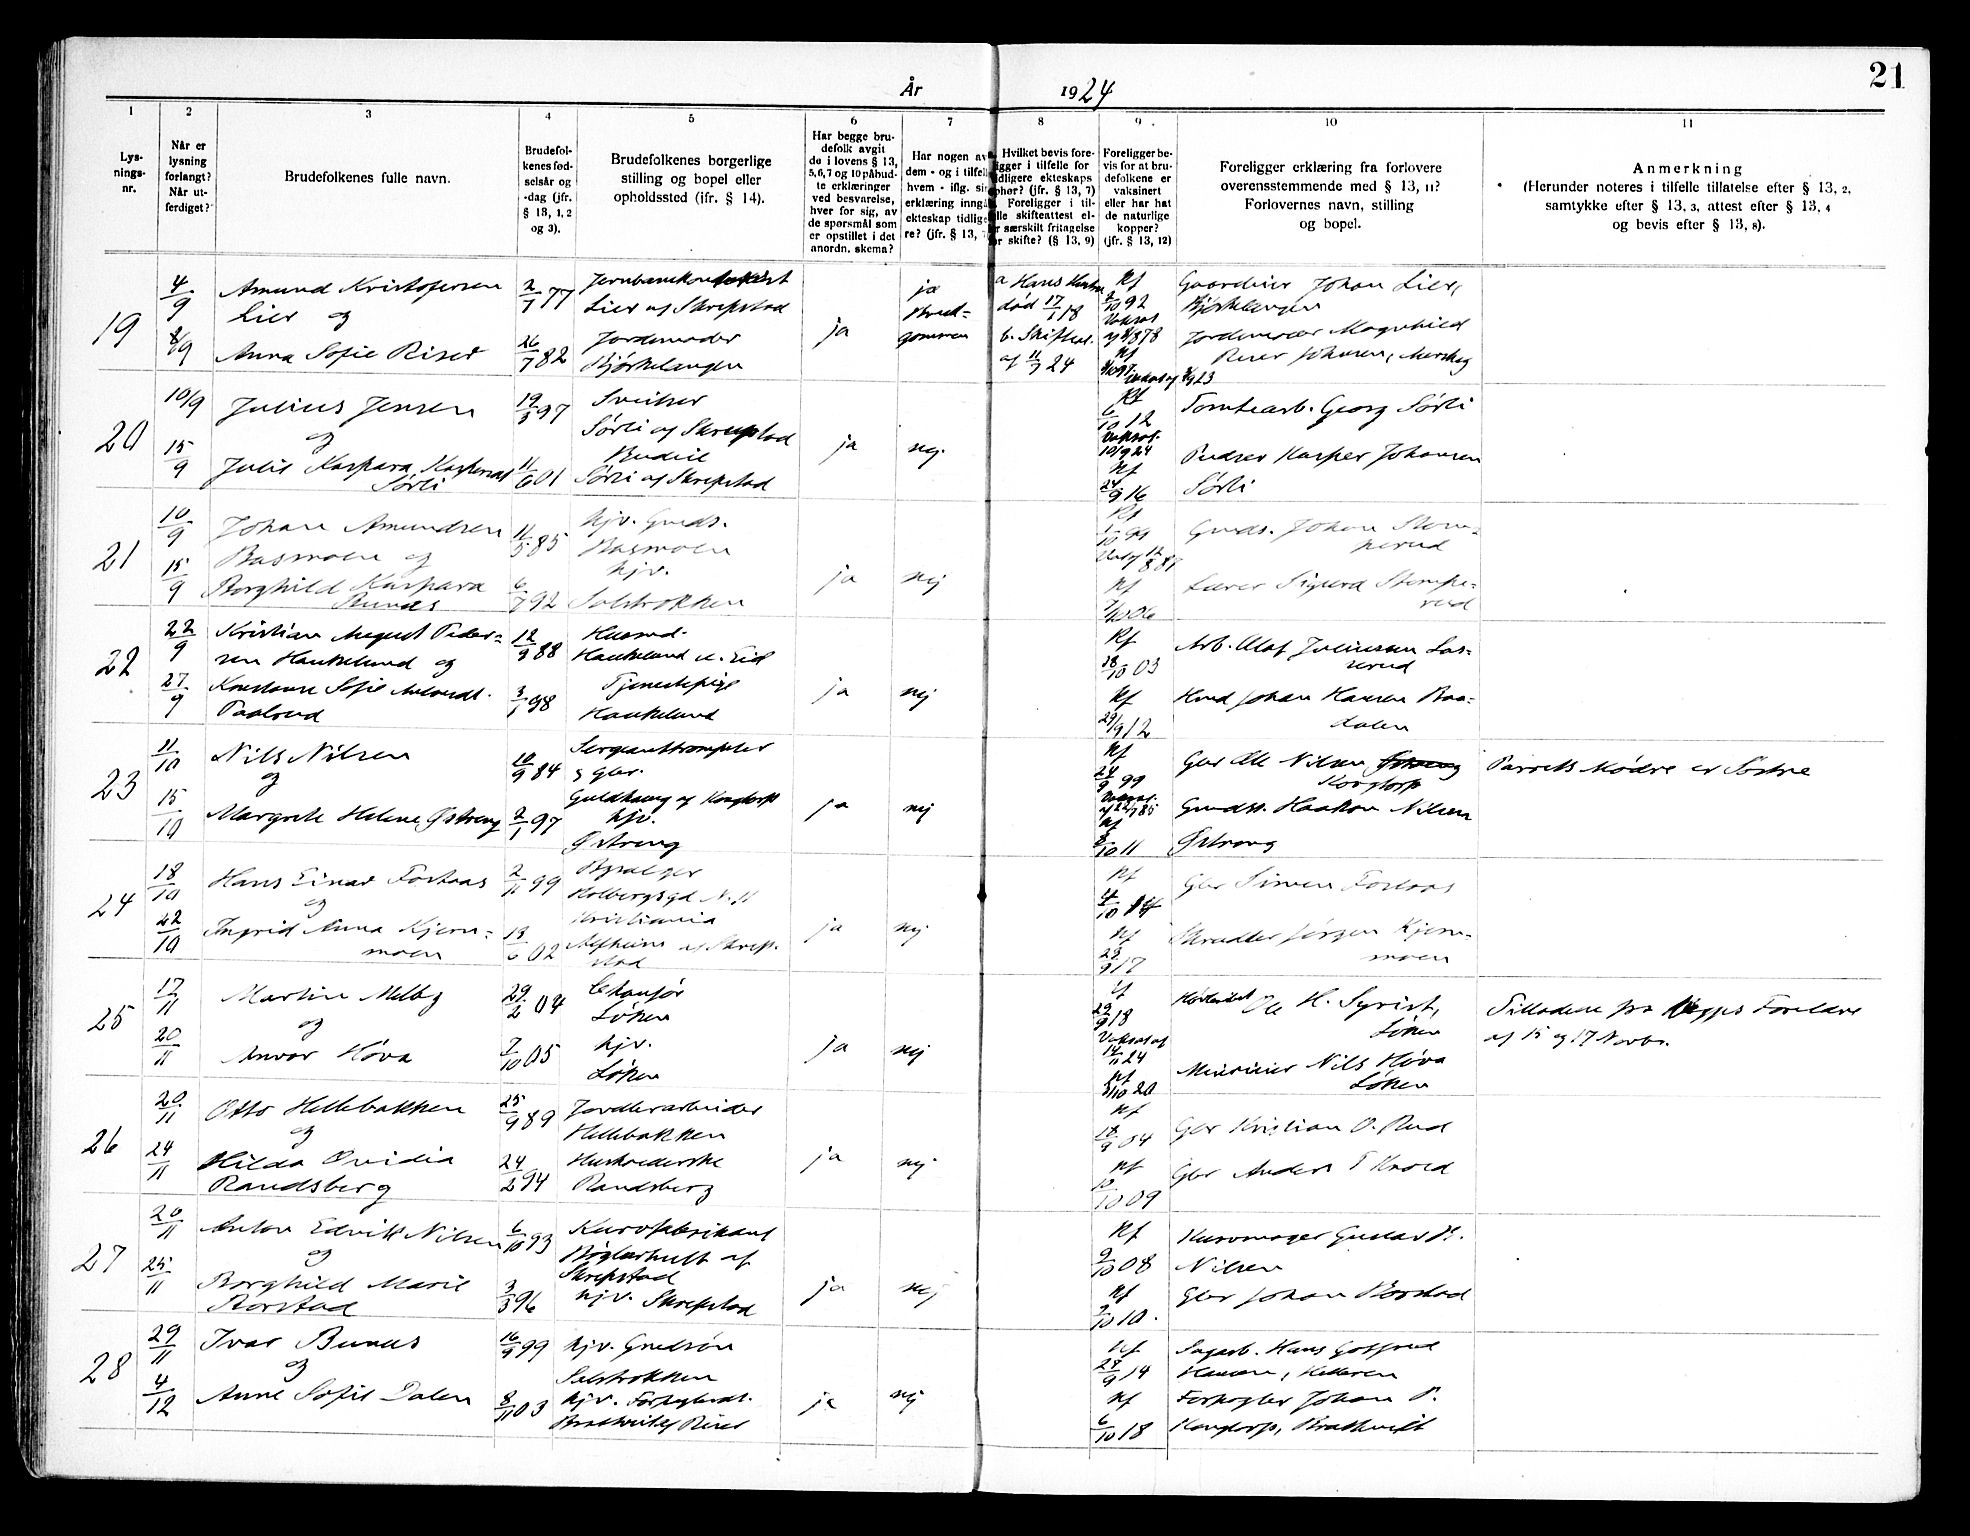 21
År 1924
1 2 3 4 5 6 7 8 9 10 11
Lys-
nings-
nr.
Når er
lysning
forlangt?
Når ut-
ferdiget?
Brudefolkenes fulle navn.
Brudefol-
kenes fød-
selsår og
-dag (jfr.
§ 13, 1, 2
og 3).
Brudefolkenes borgerlige
stilling og bopel eller
opholdssted (ifr. § 14).
Har begge bru-
defolk avgit
de i lovens § 13,
5,6,7 og 10 påbud-
te erklæringer
ved besvarelse,
hver for sig, av
de spørsmål som
er opstillet i det
anordn. skema?
Har nogen av
dem - og i tilfelle
hvem - iflg. sin
erklæring inngå
ekteskap tidlige
re? (jfr. § 13, 7
Hvilket bevis fore-
ligger i tilfelle for
tidligere ekteskaps
ophør? (jfr. § 13, 7)
Foreligger i til-
felle skifteattest el-
r særskilt fritagelse
or skifte? (§ 13, 9)
Foreligger be-
vis for at bru-
defolkene er
vaksinert
eller har hat
de naturlige
kopper?
(jfr. § 13, 12)
Foreligger erklæring fra forlovere
overensstemmende med § 13, 11?
Forlovernes navn, stilling
og bopel.
Anmerkning
(Herunder noteres i tilfelle tillatelse efter § 13, 2,
samtykke efter § 13, 3, attest efter § 13, 4
og bevis efter § 13, 8).
19
4/9
8/9
Amund Kristofersen
Lier og
Anna Sofie Riser
2/7 77
26/7 82
Lier af Skrepstad
Jordemoder
Bjørkelangen
ja
ja
Brud-
gommen
a Hans Hustru
død 17/1 18
b. Skifteat.
af 11/9 24
Gaardeier Johan Lier,
Bjørkelangen
Jordemor Magnhild
Riser Johnsen, Aurskog
20
10/9
15/9
Julius Jensen
og
Julie Kaspara Kaspersd.
Sørli
19/3 97
11/6 01
Sveitser
Sørli af Skrepstad
Budeie
Sørli af Skrepstad
ja
nej.
Rf
6/10 12
Vaksat.
10/9 24
Rf
24/9 16
Tomtearb. Georg Sørli
Pudser Kasper Johansen
Sørli
21
10/9
15/9
Johan Amundsen
Basmoen og
Borghild Kaspara
Bunæs
11/5 85
6/7 92
hjv. Grds.
Basmoen
hjv.
Selstrokken
ja
nej
Grds. Johan Stom-
perud
Lærer Sigurd Stompe-
rud
22
22/9
27/9
Kristian August Peder-
sen Haukelund og
Konstanse Sofie
Paalerud
12/9 88
3/1 98
Husmd.
Haukelund i Eid
Tjenestepige
Haukelund
ja
nej
Rf
28/10 03
Rf
29/9 12
Arb. Olaf Juliussen Las-
serud
Hmd Johan Hansen Baa-
dalen
23
11/10
15/10
Nils Nilsen
og
Margrete Helene Østreng
10/9 84
2/1 97
Sergeanttrompeter
& gbr.
Guldhaug af Kongtorp
hjv.
Østreng
ja
nej
Rf
24/9 99
Rf
8/10 11
Gbr Ole Nilsen
Kongtorp
Grdss. Haakon Nilsen
Østreng
Parrets Mødre er Søstre
24
18/10
22/10
Hans Einar Fosaas
og
Ingrid Anna Kjern-
moen
2/11 99
13/6 02
Holbergsgd N. 11
Kristiania
Solheim af Skrep-
stad
ja
nej
Rf
4/10 14
Rf
29/9 17
Gbr Simen Fosaas
Skrædder Jørgen Kjern-
moen
25
17/11
20/11
Martin Melby
og
Anvor Hova
29/2 04
7/10 05
Chaufør
Løken
hjv.
Løken
ja
nej
Rf
22/9 18
Vaksat af
14/11 24
Rf
5/10 20
Ole H. Syrist,
Løken
Meieribestyrer Nils Hova
Løken
Tilladelse fra Begges Foreldre
af 15 og 17 Novbr.
26
20/11
24/11
Otto Hellebakken
og
Hilda Ovidia
Randsberg
25/9 89
24/2 94
Jordbrarbeider
Hellebakken
Husholderske
Randsberg
ja
nej
Rf
17/9 04
Rf
10/10 09
Gbr Kristian O. Rud
Gbr Anders T Knold
27
20/11
25/11
Anton Edvill Nilsen
og
Borghild Marie
Borstad
6/10 93
3/3 96
Kurvfabrikant
Bøglerhult af
Skrepstad
hjv. Skrepstad
ja
nej
Rf
9/10 08
Rf
7/10 10.
Kurvmager Gustav N.
Nilsen
Gbr Johan Borstad
28
29/11
4/12
Ivar Bunæs
og
Anne Sofie Dalen
16/9 99
8/11 03
hjv. Grdsøn
Selstrokken
hjv. Forpagterdt.
ja
nej
Rf
27/9 14
Rf
6/10 18
Sagarb. Hans Gotfred
Hansen,
Forpagter Johan P.
Kongtorp, Bratkveit